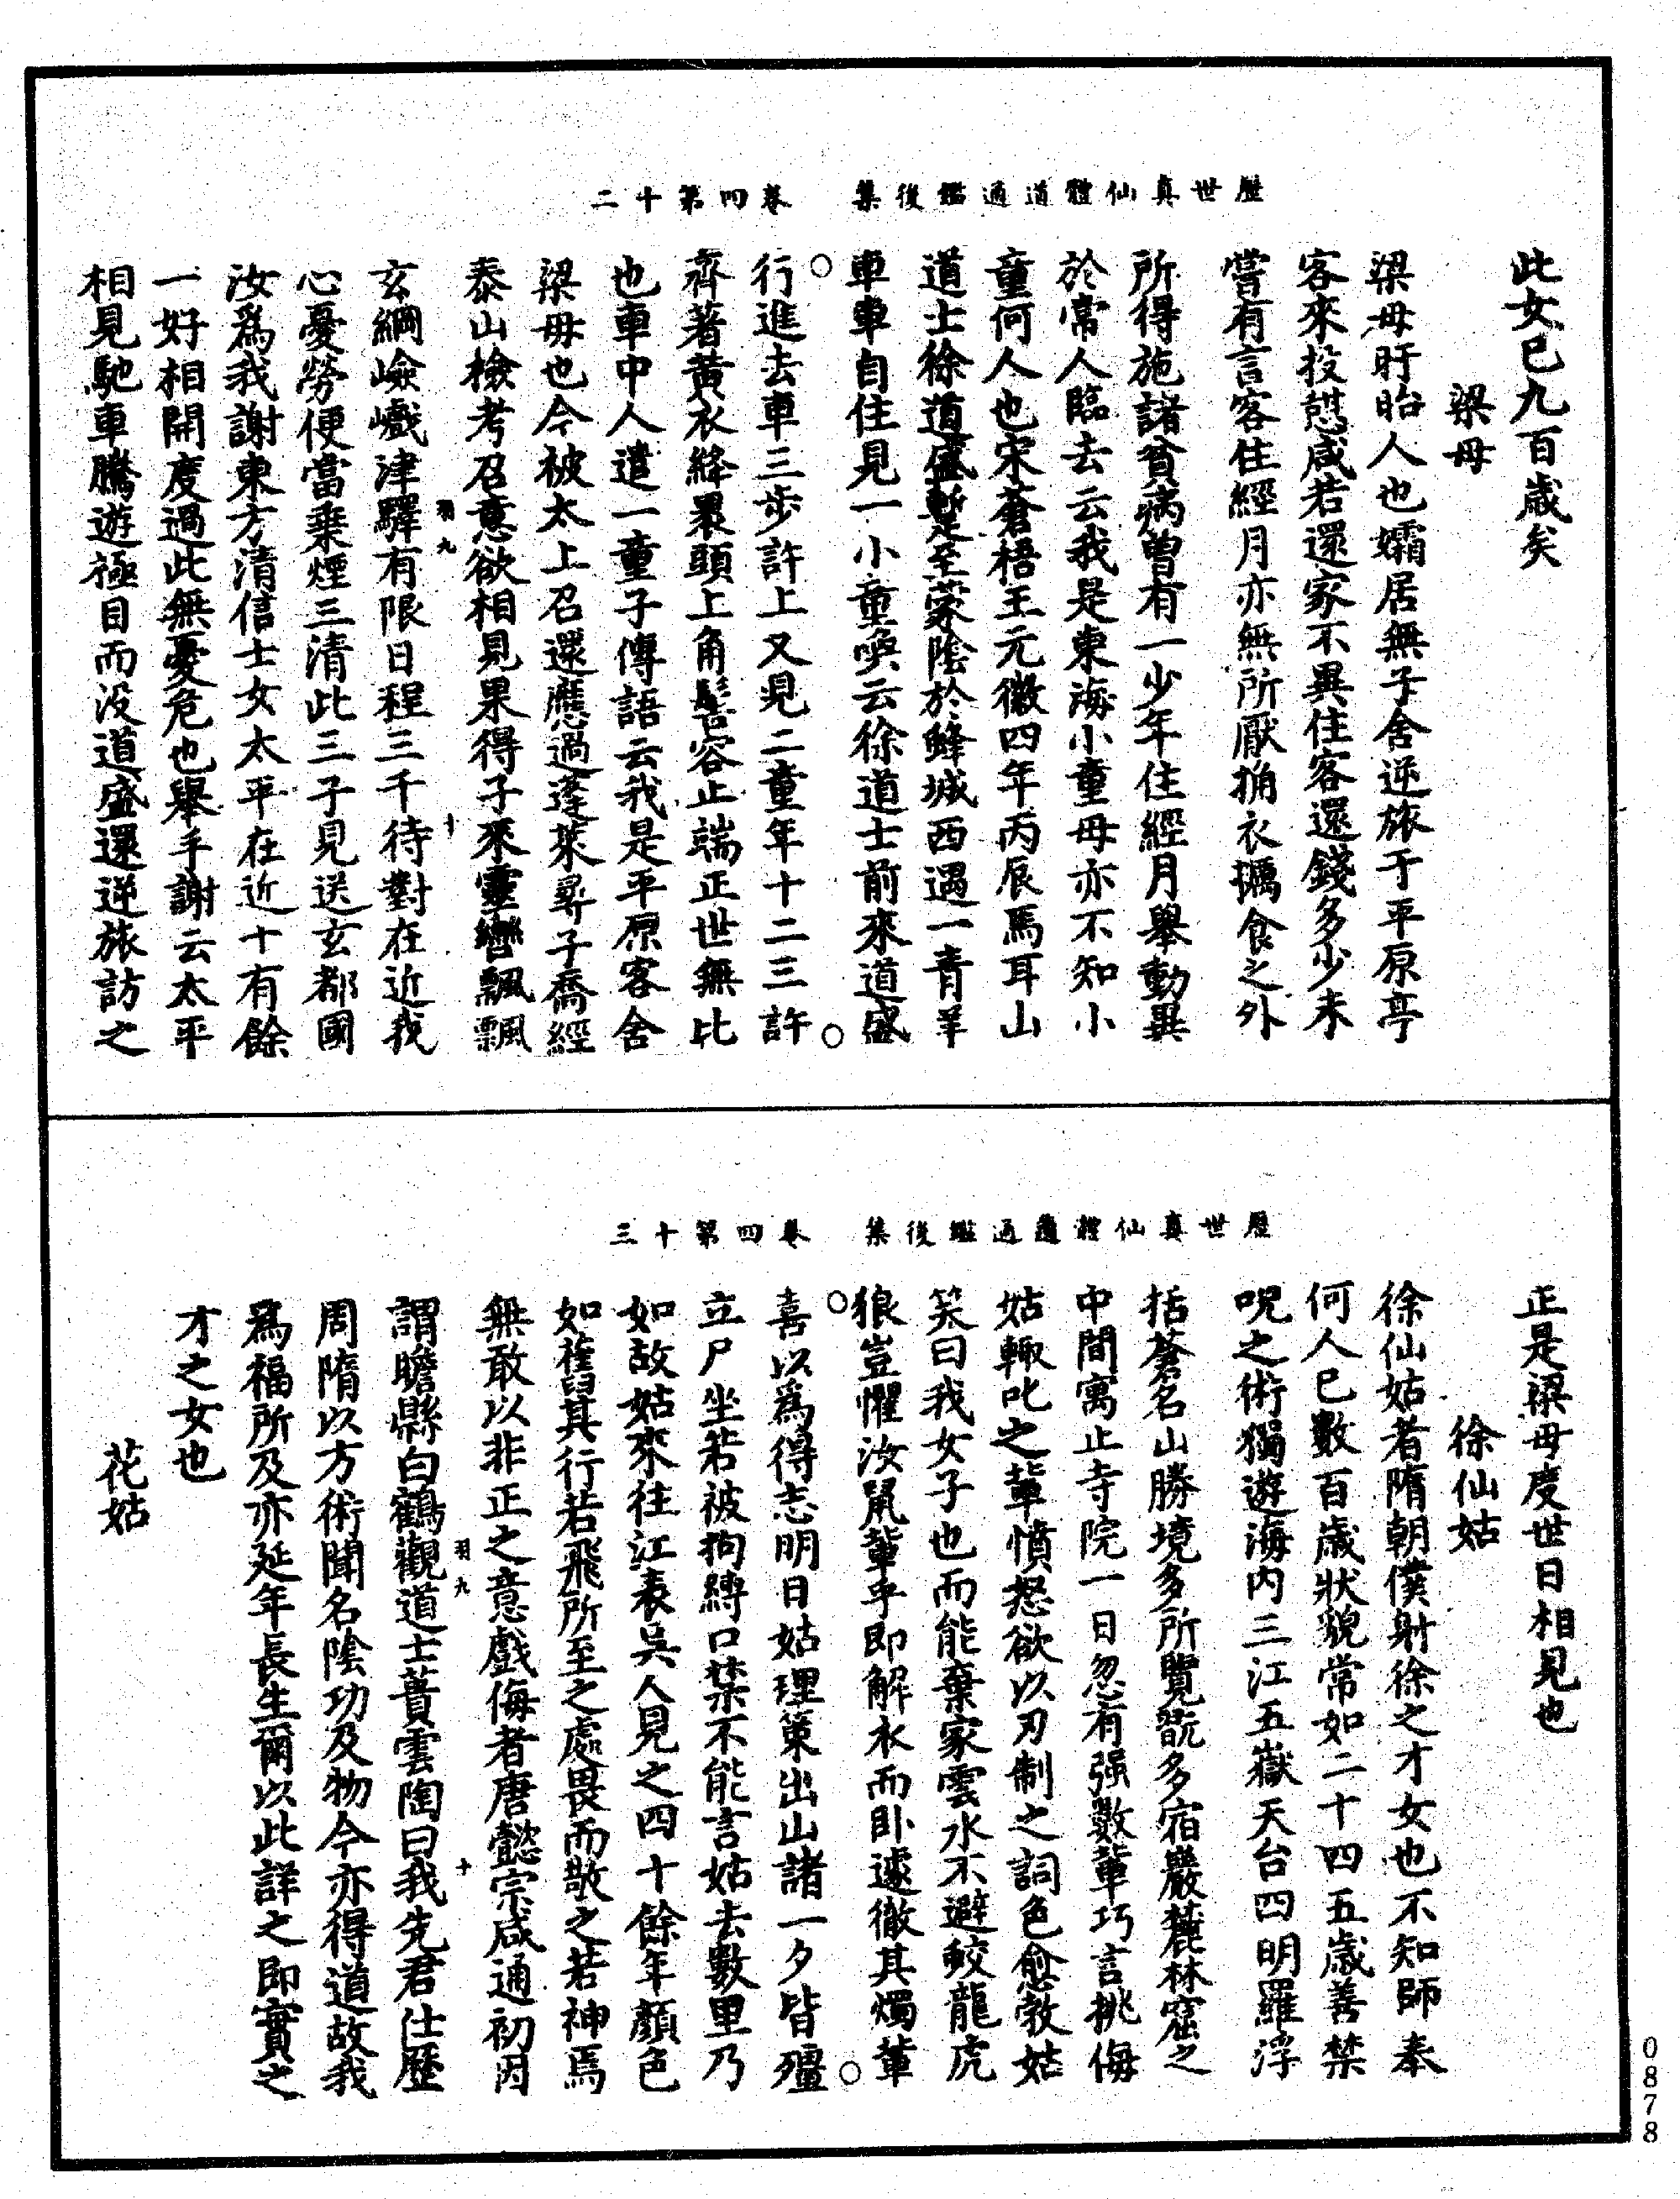 歷世真仙體道通鑑後集 卷四第十二
此女已九百歲矣
梁母
梁母盱眙人也孀居無子舍逆旅于平原亭
客來投憩咸若還家不異住客還錢多少未
嘗有言客住經月亦無所厭拍衣糲食之外
所得施諸貧病曾有一少年住經月舉動異
於常人臨去云我是東海小童母亦不知小
童何人也宋蒼梧王元徽四年丙辰馬耳山
道士徐道盛暫至蒙陰於蜂城西遇一青羊
車車自住見一小童喚云徐道士前來道盛
行進去車三步許上又見二童年十二三許
齊著黃衣絳裹頭上角髻容止端正世無比
也車中人遣一童子傳語云我是平原客舍
梁母也今被太上召還應過蓬萊尋子喬經
泰山檢考召意欲相見果得子來靈轡飄飄
玄綱嶮巇津驛有限日程三千待對在近我
羽九 十
心憂勞便當乗煙三清此三子見送玄都國
汝爲我謝東方清信士女太平在近十有餘
一好相開度過此無憂危也舉手謝云太平
相見馳車騰遊極目而沒道盛還逆旅訪之
歷世真仙體道通鑑後集 卷四第十三
正是梁母度世日相見也
徐仙姑
徐仙姑者隋朝僕射徐之才女也不知師奉
何人已數百歲狀貌常如二十四五歲善禁
呪之術獨遊海內三江五嶽天台四明羅浮
括蒼名山勝境多所覽翫多宿巖麓林窟之
中間寓止寺院一日忽有强數輩巧言挑侮
姑輒叱之輩憤怒欲以刃制之詞色愈敦姑
笑曰我女子也而能棄家雲水不避鮫龍虎
狼豈懼汝鼠輩乎即解衣而卧遽徹其燭輩
喜以爲得志明日姑理策出山諸一夕皆殭
立尸坐若被狗縛口禁不能言姑去數里乃
如故姑來往江表吳人見之四十餘年顏色
如舊其行若飛所至之處畏而敬之若神焉
無敢以非正之意戲侮者唐懿宗咸通初因
謂瞻縣白鶴觀道士蕢雲陶曰我先君仕歷
羽九 十
周隋以方術聞名陰功及物今亦得道故我
爲福所及亦延年長生爾以此詳之即實之
才之女也
花姑
0878